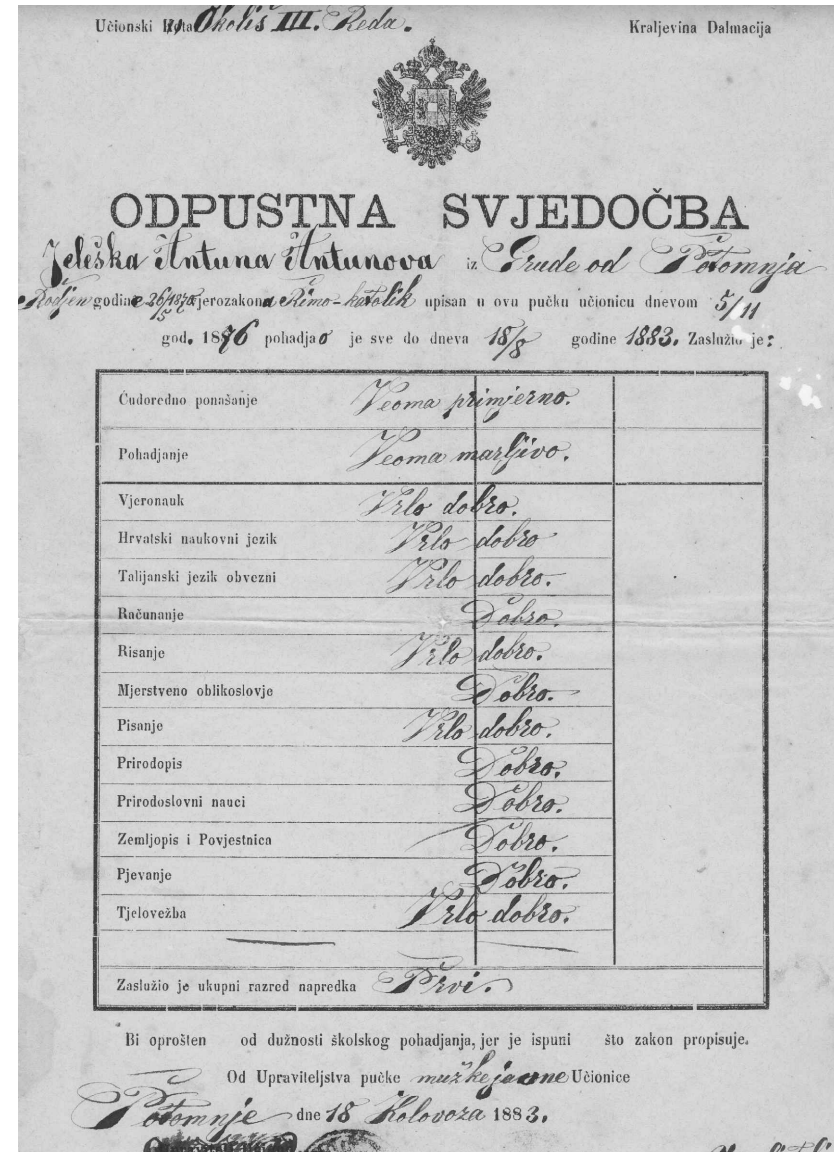 Učionski Kotar Okoliš III. Reda. Kraljevina Dalmacija
ODPUSTNA SVJEDOČBA
Jeleška Antuna Antunova iz Grude od Potomnja
Rodjen godine 26/5 1870 vjerozakona Rimo-katolik upisan u ovu pučku učionicu dnevom 5/11
god. 1876 pohadjao je sve do dneva 18/8 godine 1883. Zaslužio je:
Ćudoredno ponašanje Veoma primjerno.
Pohadjanje Veoma marljivo.
Vjeronauk Vrlo dobro.
Hrvatski naukovni jezik Vrlo dobro
Talijanski jezik obvezni Vrlo dobro.
Računanje Dobro.
Risanje Vrlo dobro.
Mjerstveno oblikoslovje Dobro.
Pisanje Vrlo dobro.
Prirodopis Dobro.
Prirodoslovni nauci Dobro.
Zemljopis i Povjestnica Dobro.
Pjevanje Dobro.
Tjelovežba Vrlo dobro.
Zaslužio je ukupni razred napredka Prvi.
Bi oprošten od dužnosti školskog pohadjanja, jer je ispuni što zakon propisuje.
Od Upraviteljstva pučke mužke javne Učionice
Potomnje dne 18 Kolovoza 1883.